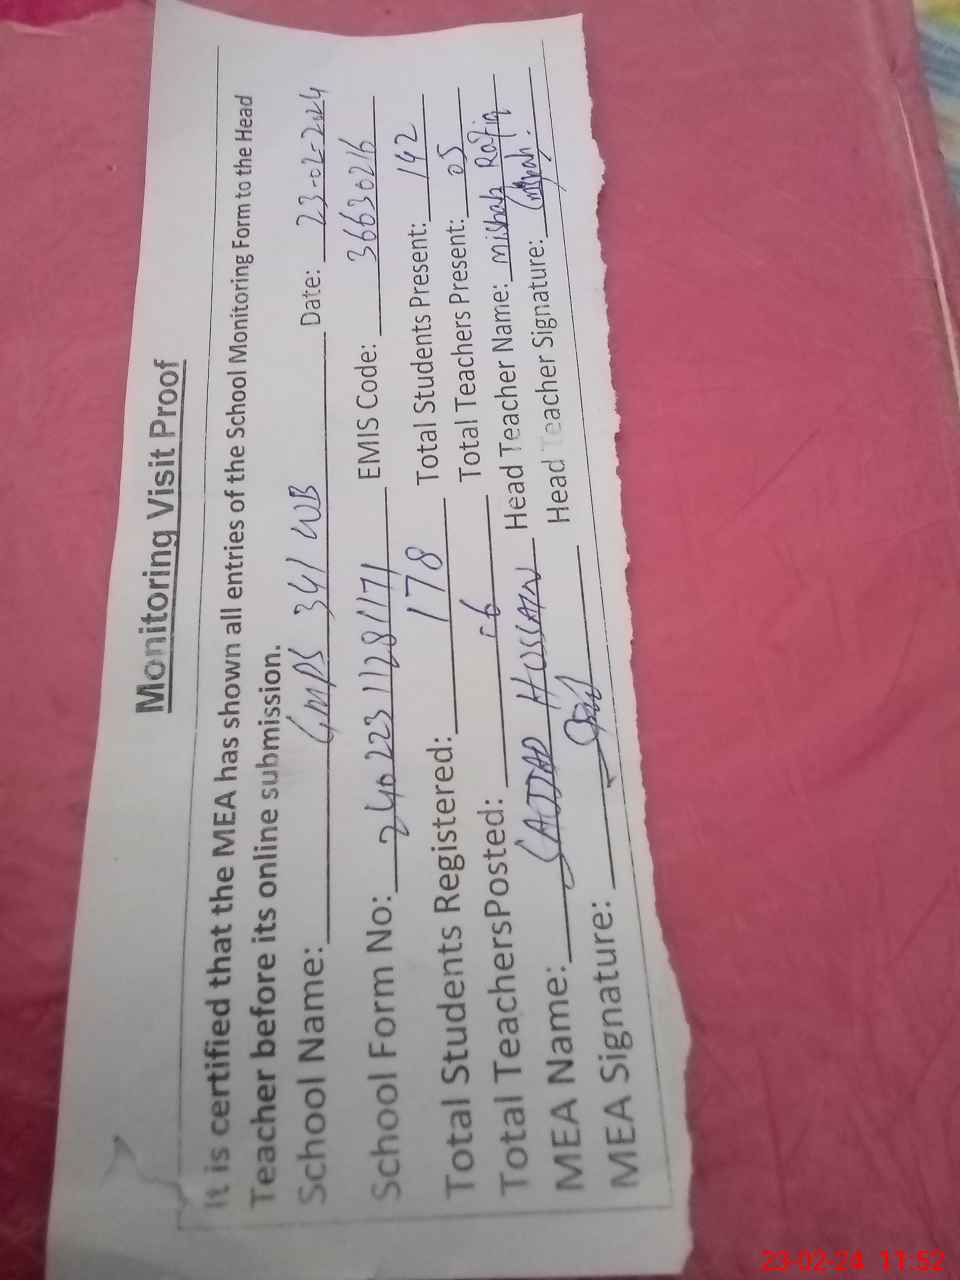 Monitoring Visit Proof
It is certified that the MEA has shown all entries of the School Monitoring Form to the Head
Teacher before its online submission.
School Name: GMPS 341 WB Date: 23-02-2024
School Form No: 24022311281171 EMIS Code: 36630216
Total Students Registered: 178 Total Students Present: 142
Total TeachersPosted: 06 Total Teachers Present: 05
MEA Name: SAJJAD HUSSAIN Head Teacher Name: Misbah Rafiq
MEA Signature: Head Teacher Signature: Misbah.
23-02-24 11:52